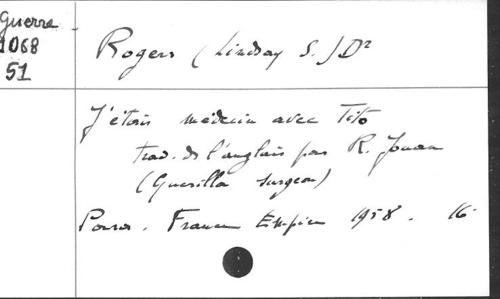 Guerre
1068
51
Rogers (Lindsay S.) Dr
J'étais médecin avec Tito
trad. de l'anglais par R. Jouan
(Guerilla surgeon)
Paris. France Empire 1958. 16